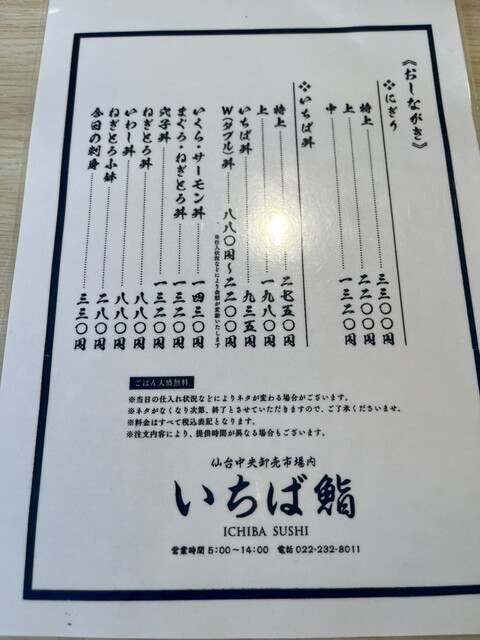 《おしながき》
❖にぎり
特上 三三〇〇円
上 二二〇〇円
中 一三二〇円
❖いちば丼
特上 二七五〇円
上 一九八〇円
いちば丼 九三五円
W(ダブル)丼 八八〇円〜二二〇〇円
※仕入状況などにより金額が変動いたします
いくら・サーモン丼 一四三〇円
まぐろ・ねぎとろ丼 一三二〇円
穴子丼 一三二〇円
ねぎとろ丼 八八〇円
いわし丼 八八〇円
ねぎとろ小鉢 二八〇円
今日の刺身 三三〇円
ごはん大盛無料
※当日の仕入れ状況などによりネタが変わる場合がございます。
※ネタがなくなり次第、終了とさせていただきますので、ご了承くださいませ。
※料金はすべて税込表記となります。
※注文内容により、提供時間が異なる場合もございます。
仙台中央卸売市場内
いちば鮨
ICHIBA SUSHI
営業時間 5:00〜14:00 電話 022-232-8011